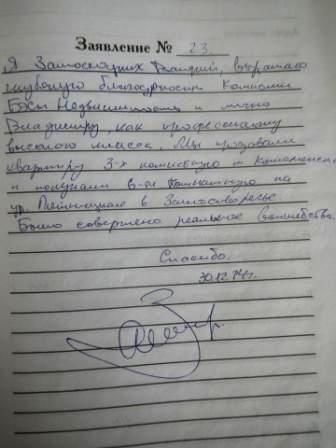 Заявление № 23.
Я Замоскоцких Геннадий, выражаю
глубокую благодарность Компании
Бэст Недвижимость и лично
Владимиру, как профессионалу
высокого класса. Мы продавали
квартиру 3-х комнатную
и получили 6-ти комнатную на
ул. Пятницкая в Замоскворечье.
Было совершено реальное Волшебство.
Спасибо.
30.12.14г.